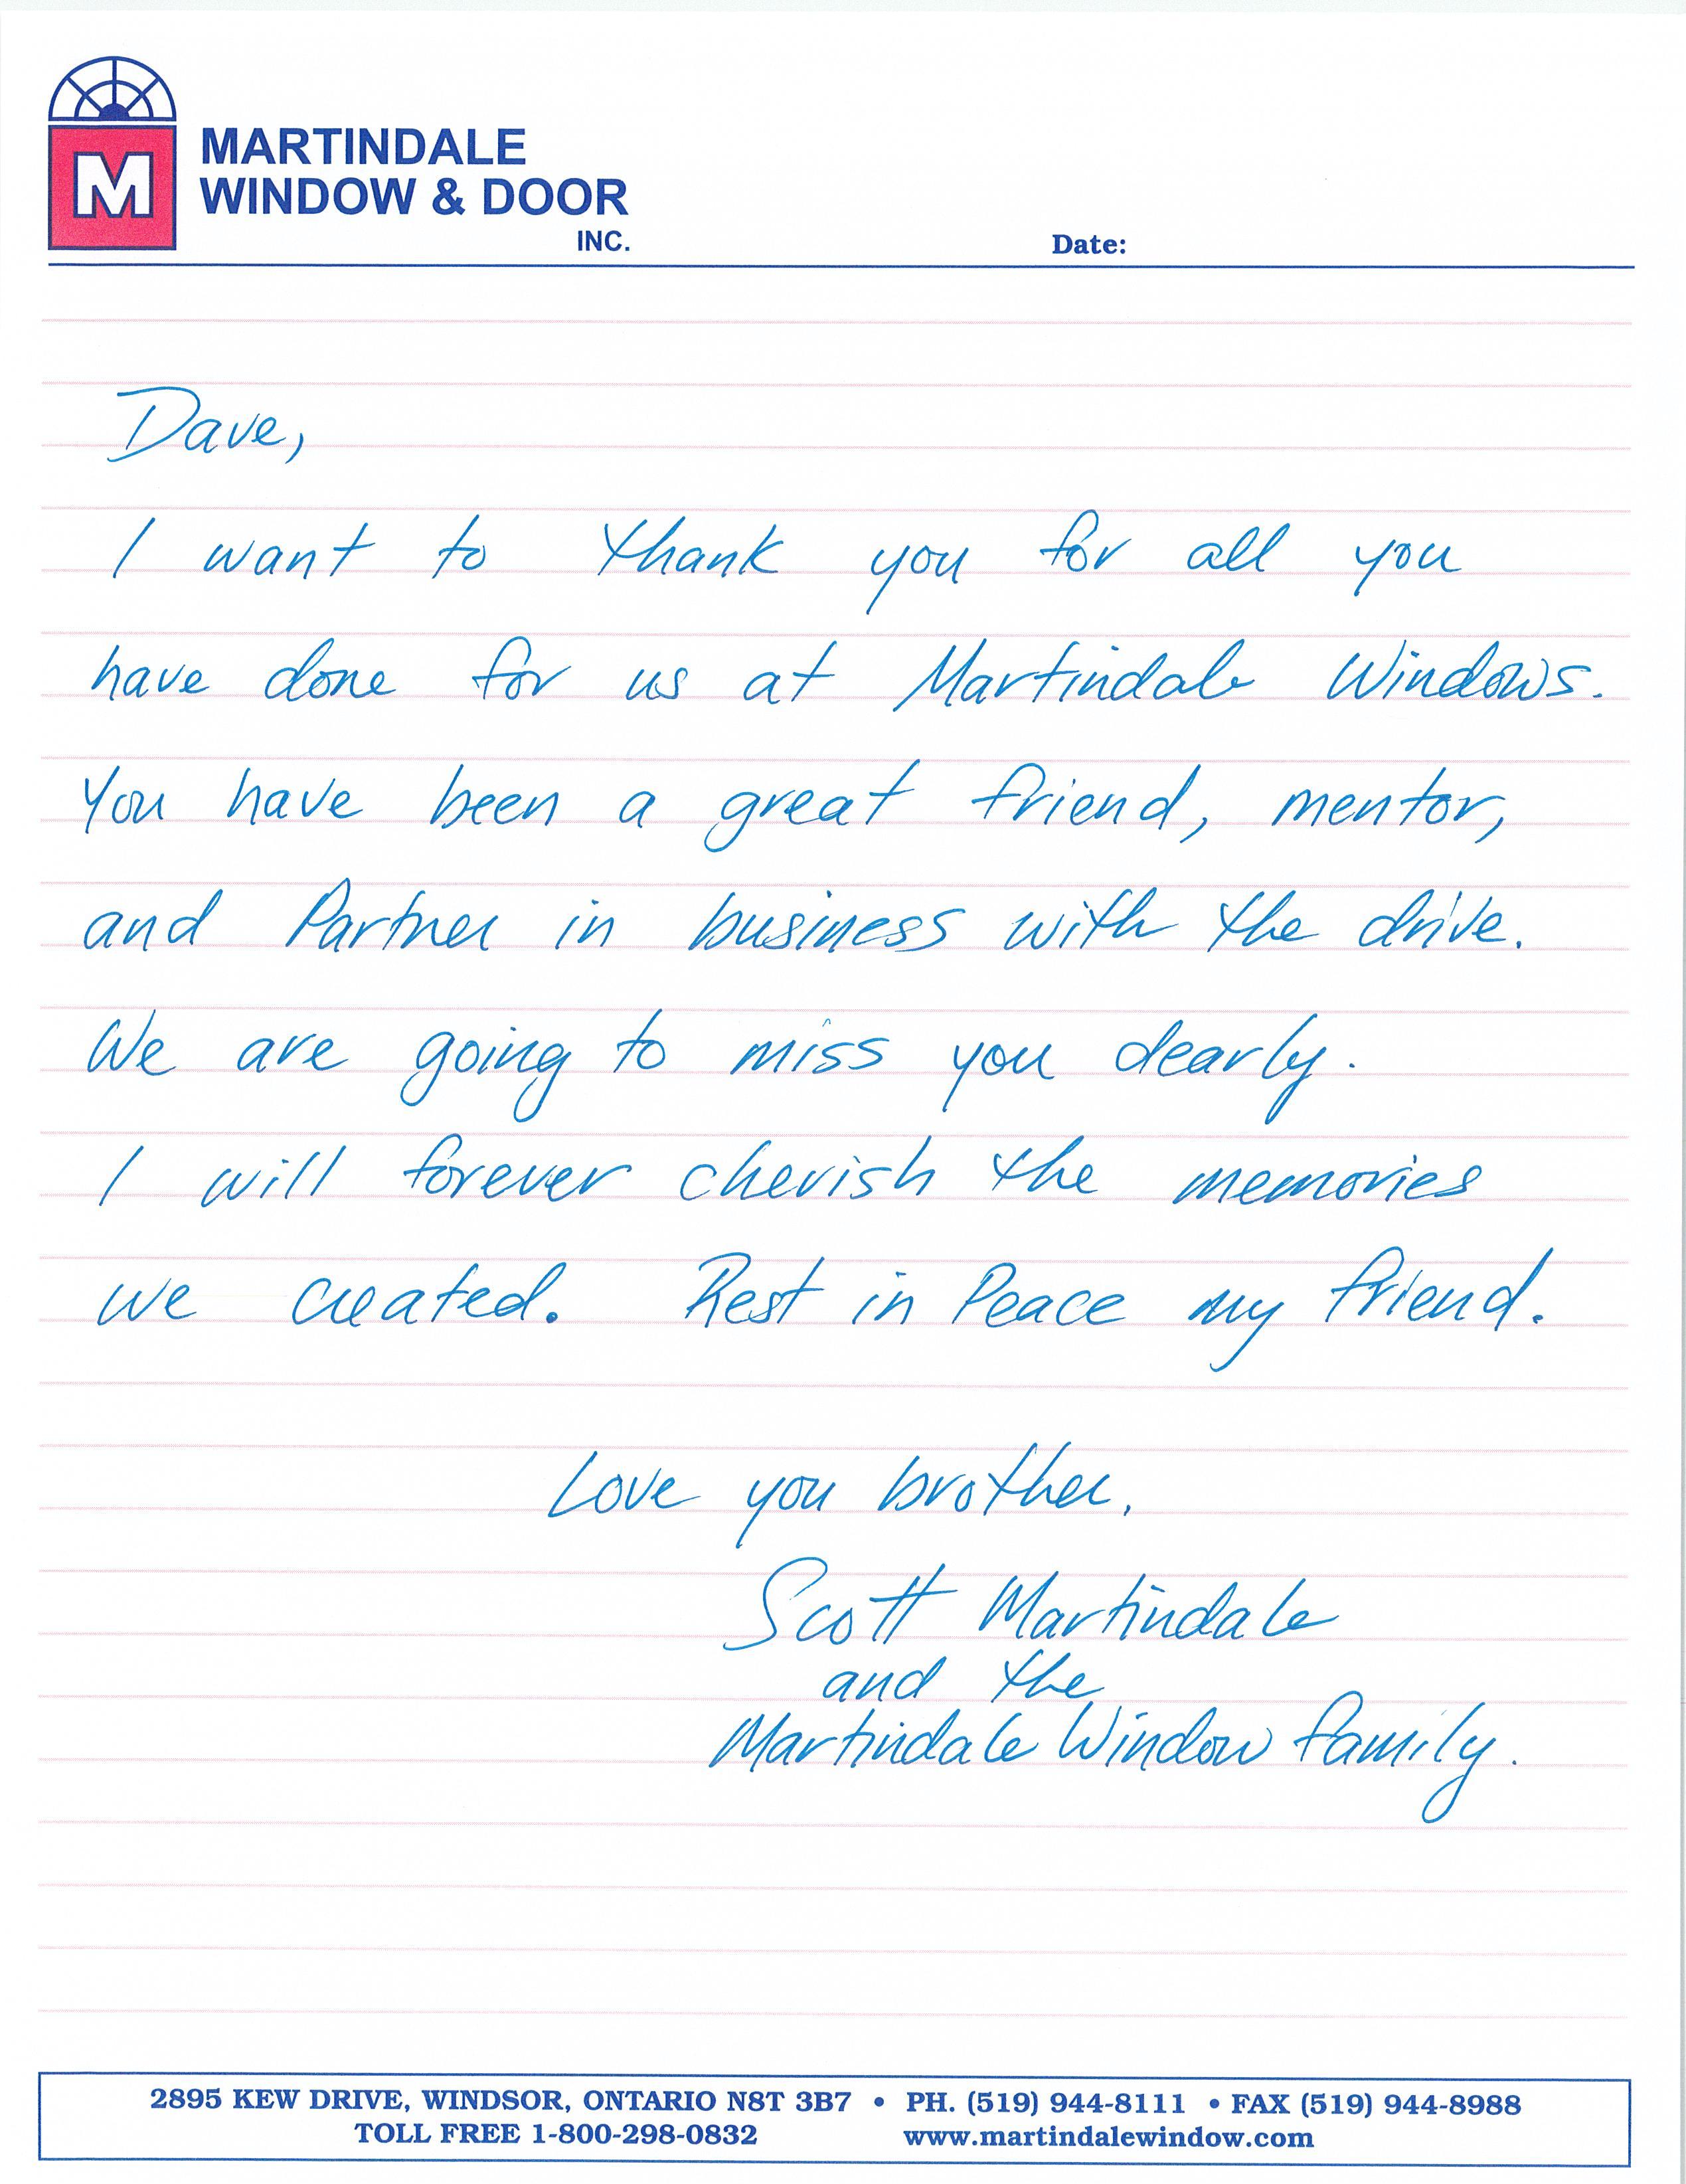 M
MARTINDALE
WINDOW & DOOR
INC.
Date:
Dave,
I want to thank you for all you
have done for us at Martindale Windows.
You have been a great friend, mentor,
and Partner in business with the drive.
We are going to miss you dearly.
I will forever cherish the memories
we created. Rest in Peace my friend.
Love you brother,
Scott Martindale
and the
Martindale Window family.
2895 KEW DRIVE, WINDSOR, ONTARIO N8T 3B7 • PH. (519) 944-8111 • FAX (519) 944-8988
TOLL FREE 1-800-298-0832 www.martindalewindow.com